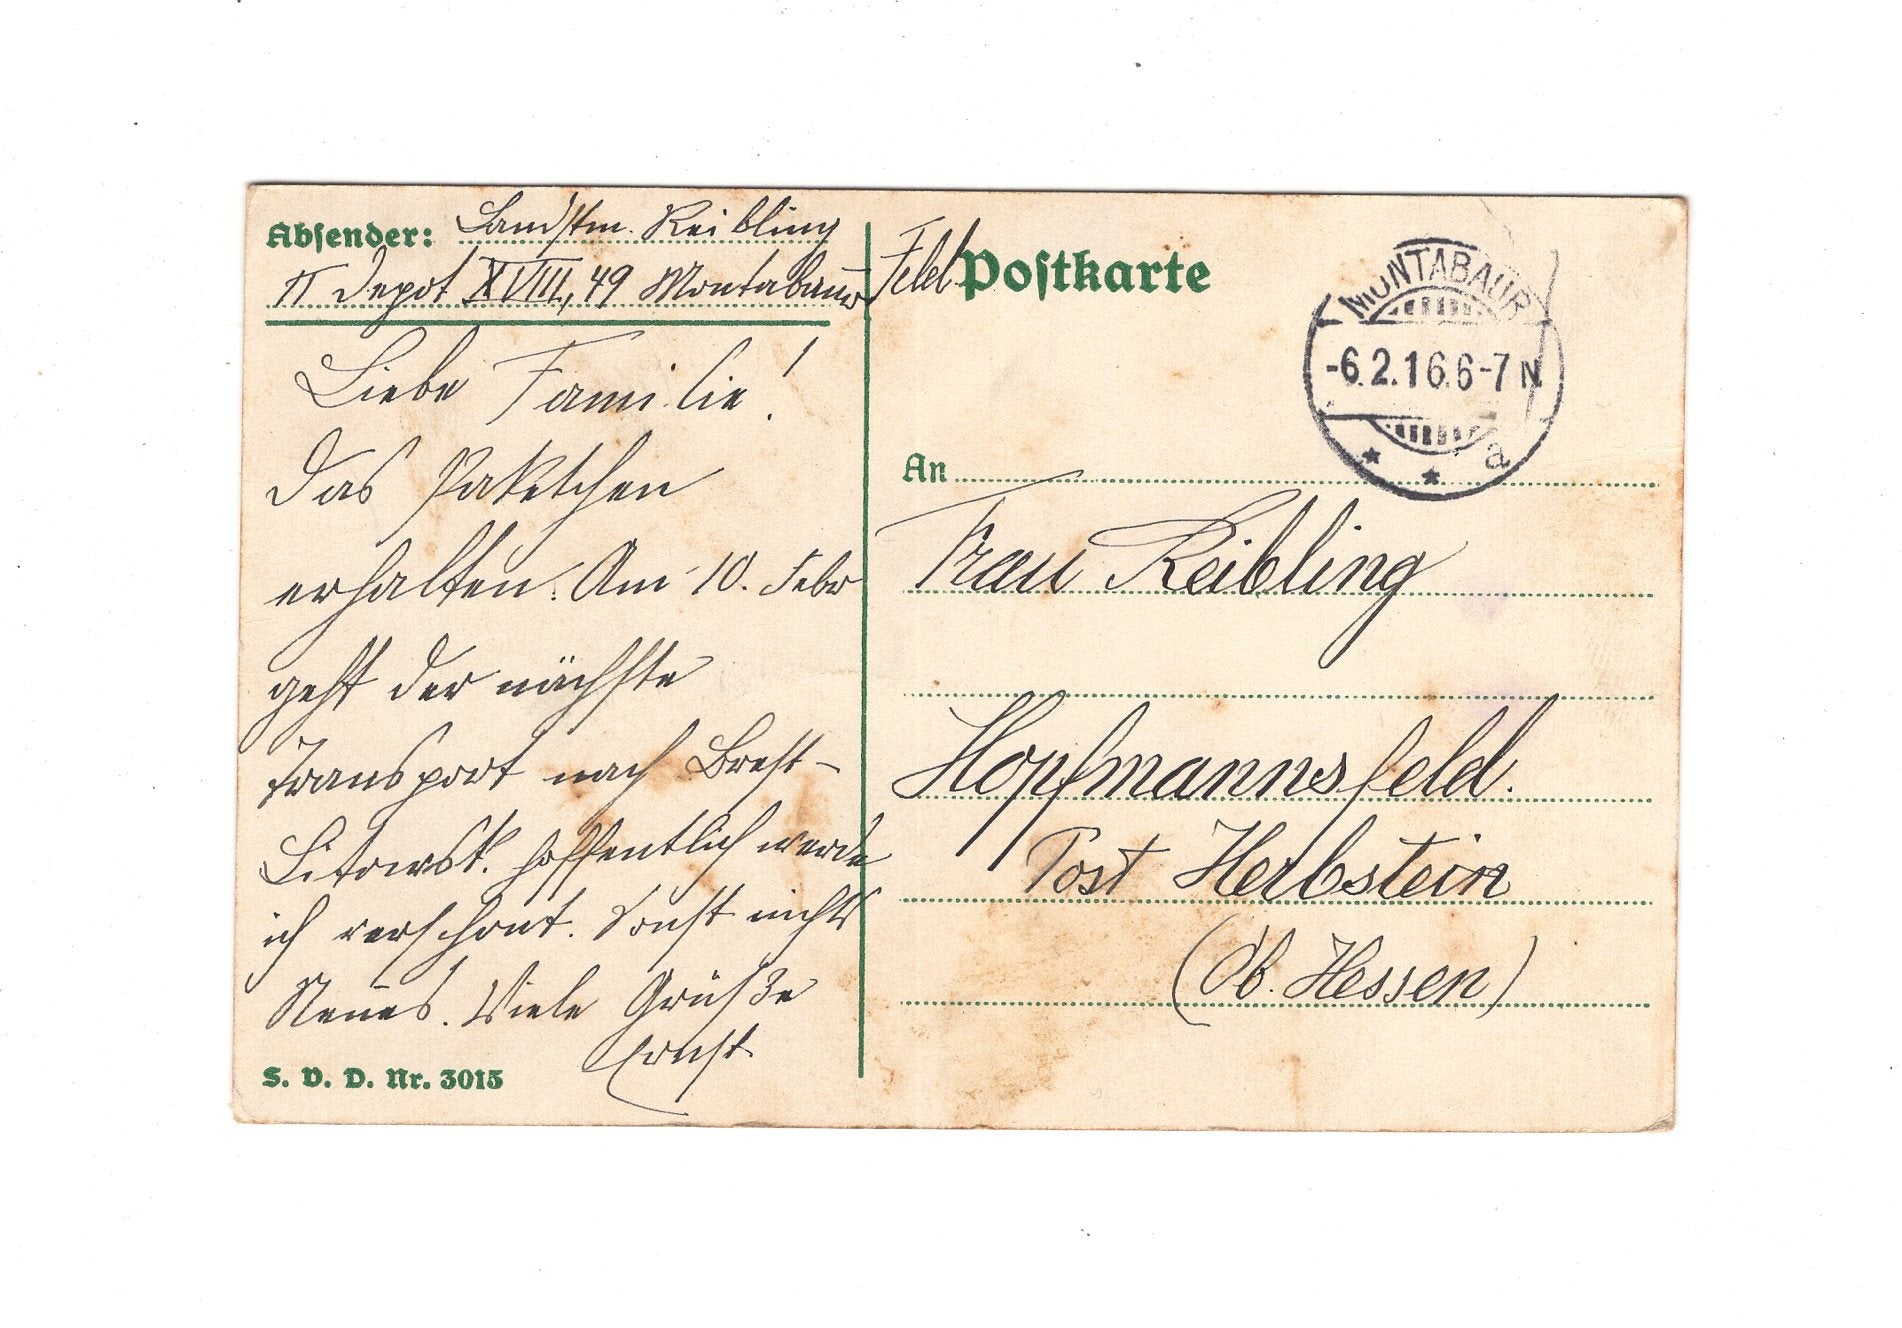 Absender: Landstm. Reibling
II Depot XVIII, 49 Montabaur
Liebe Familie!
Das Paketchen
erhalten. Am 10. Febr
geht der nächste
Transport nach Brest-
Litowsk. Hoffentlich werde
ich verschont. Sonst nichts
Neues. Viele Grüße
Ernst
S. V. D. Nr. 3015
Feld Postkarte
MONTABAUR
-6.2.16.6-7N.
* * a
An
Frau Reibling
Hopfmannsfeld.
Post Herbstein
(Ob. Hessen)